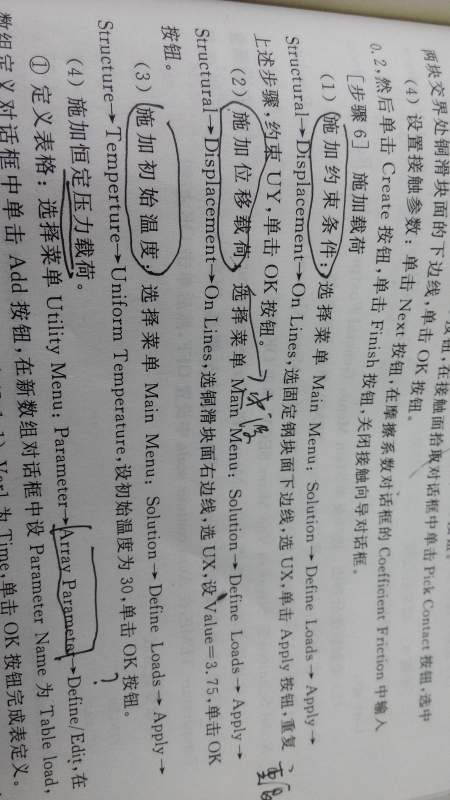 按钮,在接触面拾取对话框中单击Pick Contact按钮,选中
两块交界处铜滑块面的下边线,单击OK按钮。
(4) 设置接触参数:单击Next按钮,在摩擦系数对话框的Coefficient Friction中输入
0.2,然后单击Create按钮,单击Finish按钮,关闭接触向导对话框。
[步骤6] 施加载荷
(1) 施加约束条件:选择菜单 Main Menu: Solution→Define Loads→Apply→
Structural→Displacement→On Lines,选固定钢块面下边线,选UX,单击Apply按钮,重复
上述步骤,约束UY,单击OK按钮。
(2) 施加位移载荷,选择菜单 Main Menu: Solution→Define Loads→Apply→
Structural→Displacement→On Lines,选铜滑块面右边线,选UX,设Value=3.75,单击OK
按钮。
(3) 施加初始温度,选择菜单 Main Menu: Solution→Define Loads→Apply→
Structure→Temperture→Uniform Temperature,设初始温度为30,单击OK按钮。
(4) 施加恒定压力载荷。
① 定义表格:选择菜单 Utility Menu: Parameter→Array Parameter→Define/Edit,在
数组定义对话框中单击Add按钮,在新数组对话框中设Parameter Name为Table load,
为Time,单击OK按钮完成表定义。